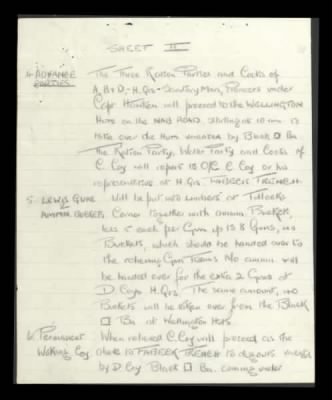 SHEET II
4. ADVANCE The Three Ration Parties and Cooks of
PARTIES. A, B & D, H.Qrs Sanitary Men, Pioneers under
Capt will proceed to the WELLINGTON
Huts on the ROAD starting at 10 am to
take over the Huts vacated by Black □ Bn.
The Ration Party, Water Party and Cooks of
C. Coy will report to O/C C. Coy or his
representative at H.Qrs. TRENCH.
5. LEWIS GUNS Will be put into Limbers at Tullocks
Corner together with ammn Buckets
less 5 each per Gun up to 8 Guns, and
Buckets, which should be handed over to
the relieving Gun Teams. No ammn will
be handed over for the extra 2 Guns at
D. Coys H.Qrs. The same amount, and
Buckets will be taken over from the Black
□ Bn at Wellington Huts.
6. Permanent When relieved C. Coy will proceed as the
Working Coy above to TRENCH to dugouts vacated
by D. Coy Black □ Bn. coming under